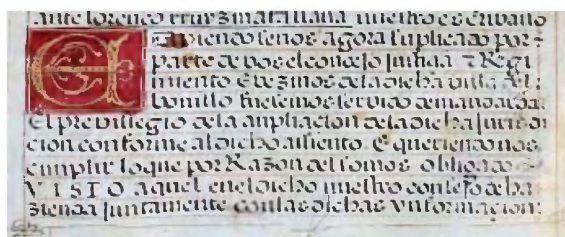 ante lorenço cruz maldana nuestro escribano
E abiendo senos agora suplicado por
parte de vos el conçejo justiçia τ Regi
miento E vezinos de la dicha villa del
bonillo fuesemos servido demandaros
El previllegio de la ampliaçion de la dicha jurisdi
çion conforme al dicho asiento. E queriendo nos
cumplir lo que por Razon del somos obligado
VISTO aquel en el dicho nuestro consejo de ha
zienda juntamente con las dichas ynformaçion